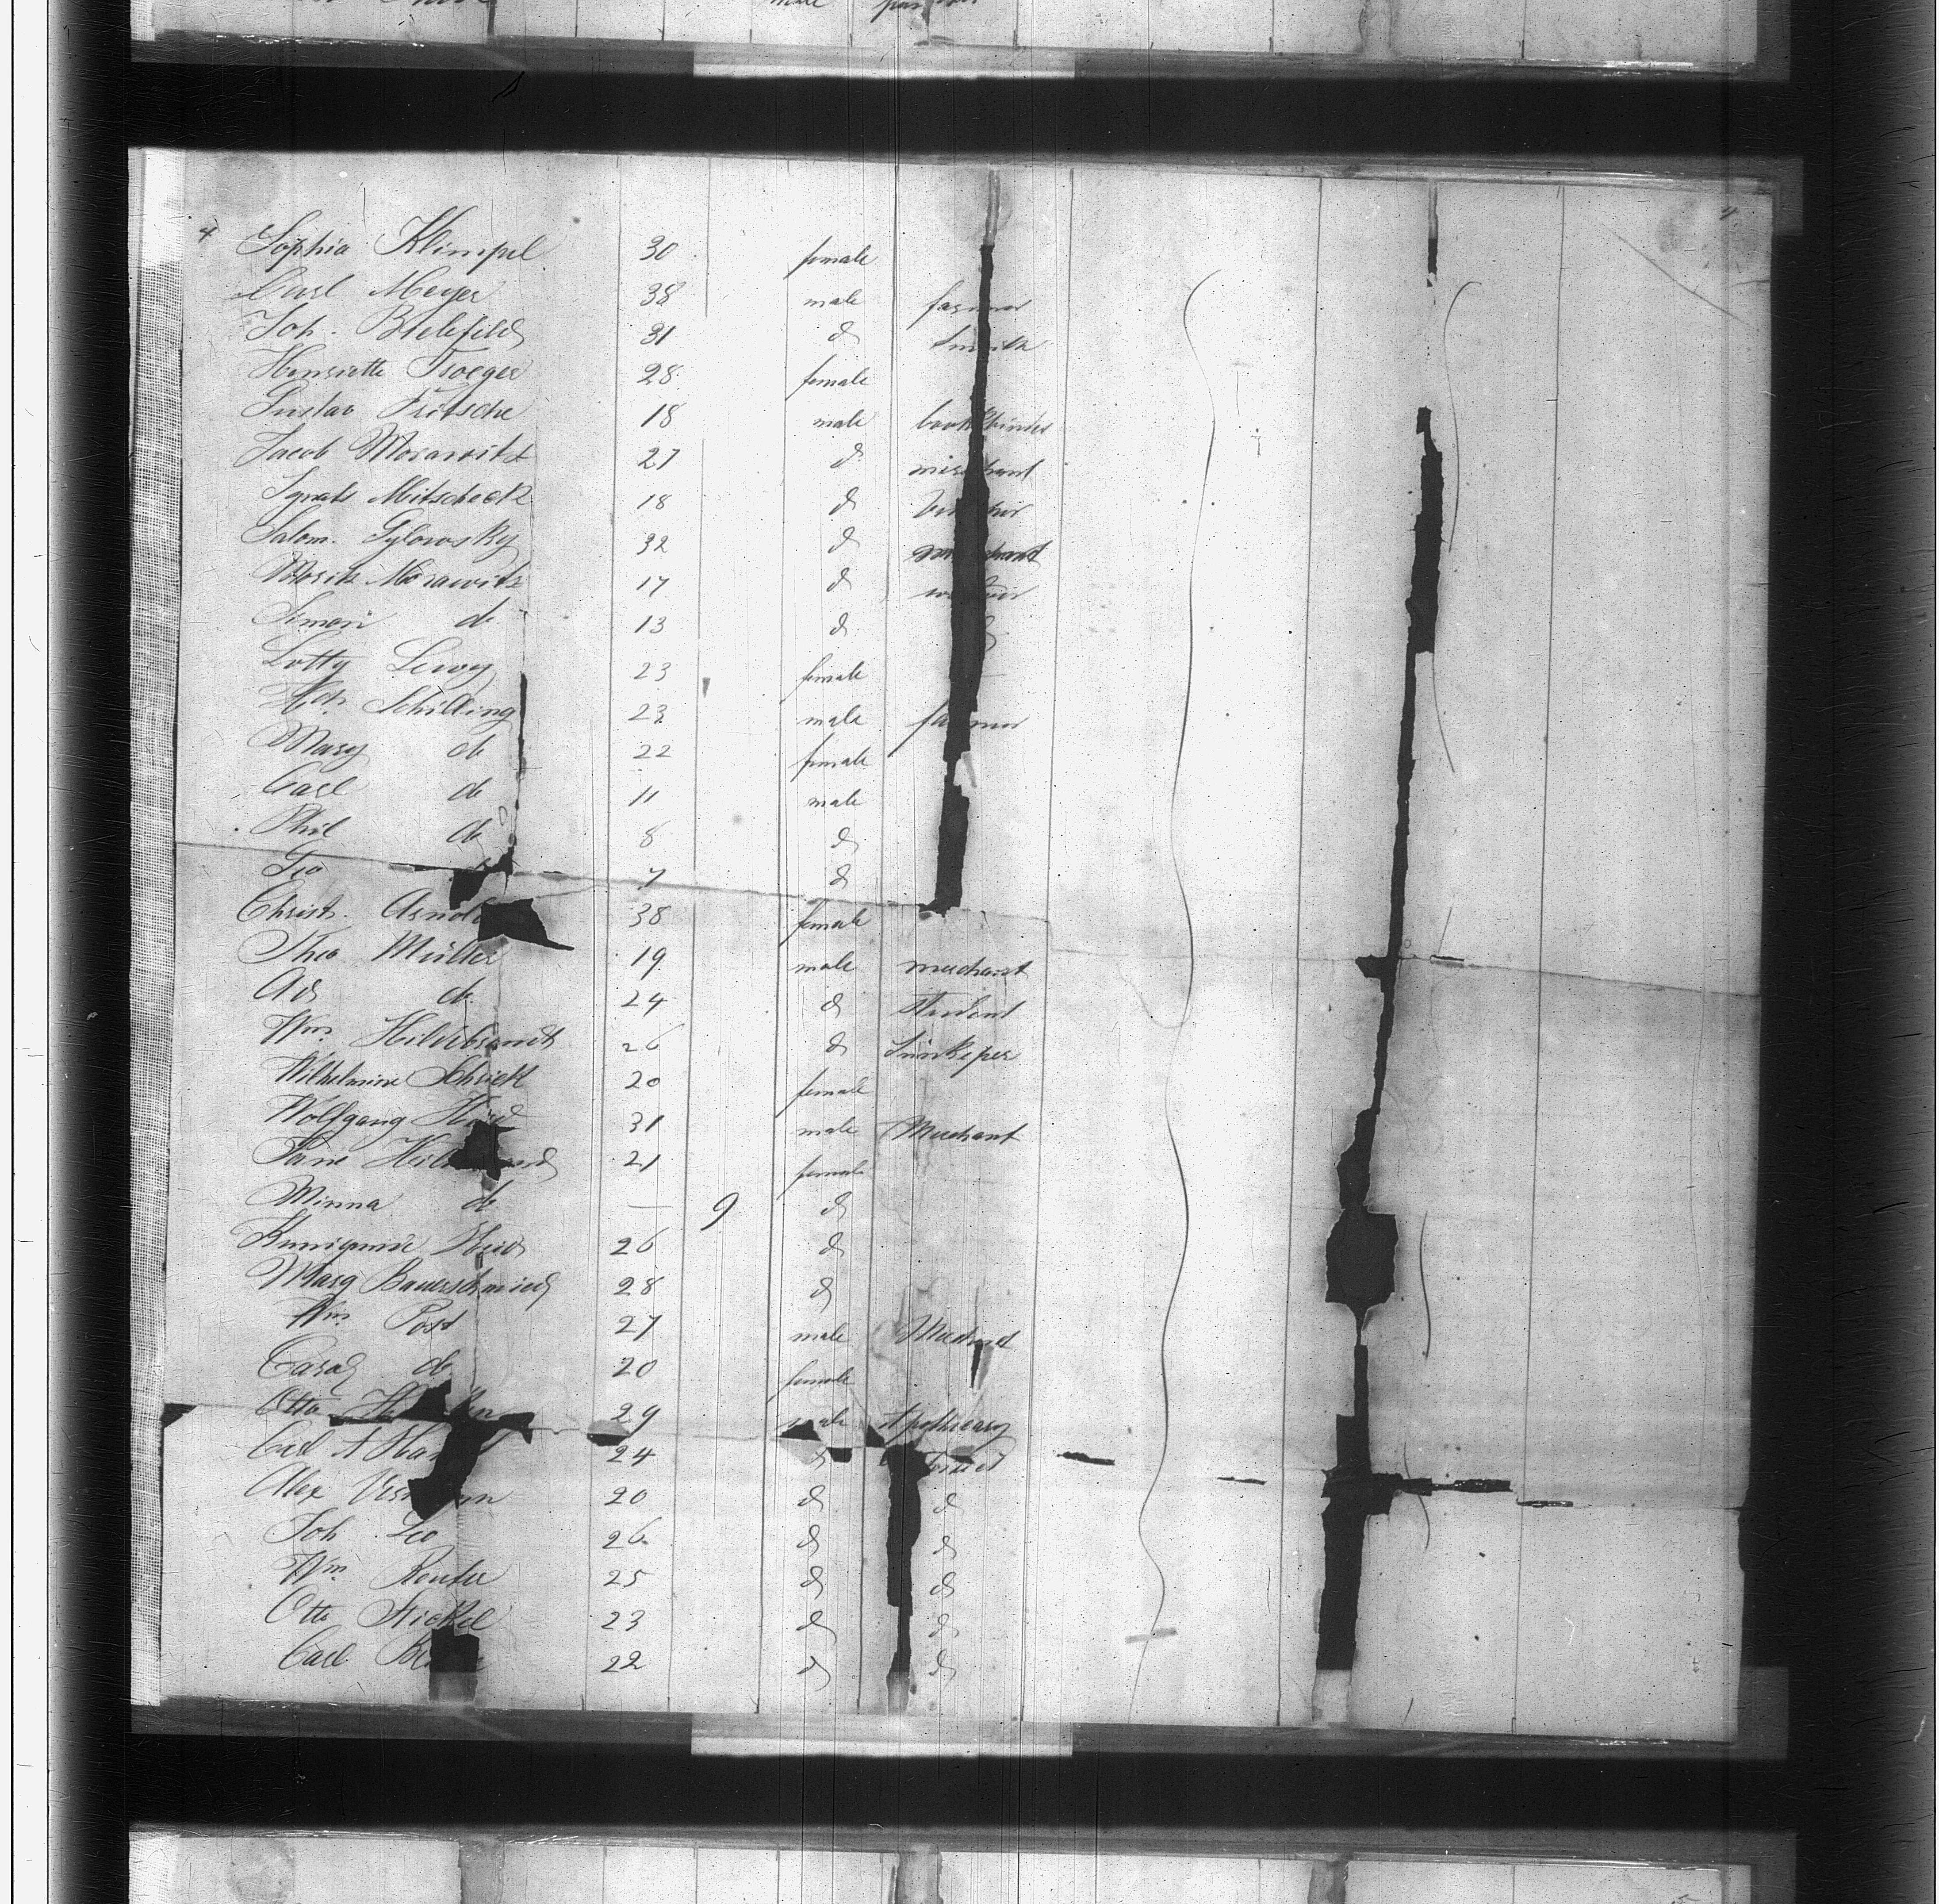 4 4
Sophia Klimpel 30 female
Carl Meyer 38 male farmer
Joh. Bielefeld 31 d smith
Henriette Troeger 28 female
Gustav Fritsche 18 male bookbinder
Jacob Morawitz 27 d merchant
Ignatz Mitscheck 18 d
Salom. Gylowsky 32 d merchant
Moritz Morawitz 17 d
Simon do 13 d d
Lotty Lewy 23 female
Hch Schilling 23 male farmer
Mary do 22 female
Carl do 11 male
Phil do 8 d
Geo 7 d
Christ. Arnold 38 female
Theo Müller 19 male merchant
Ad do 24 d Student
Wm Hildebrandt 26 d Innkeper
Wilhelmine Schriek 20 female
Wolfgang 31 male Merchant
21 female
Minna do — 9 d
26 d
Marg Bauerschmied 28 d
Wm Post 27 male Merchant
do 20 female
Otto 29 male Apothecary
Carl 24 d
Alex 20 d d
Joh Leo 26 d d
Wm Reuter 25 d d
Otto Stickel 23 d d
Carl 22 d d